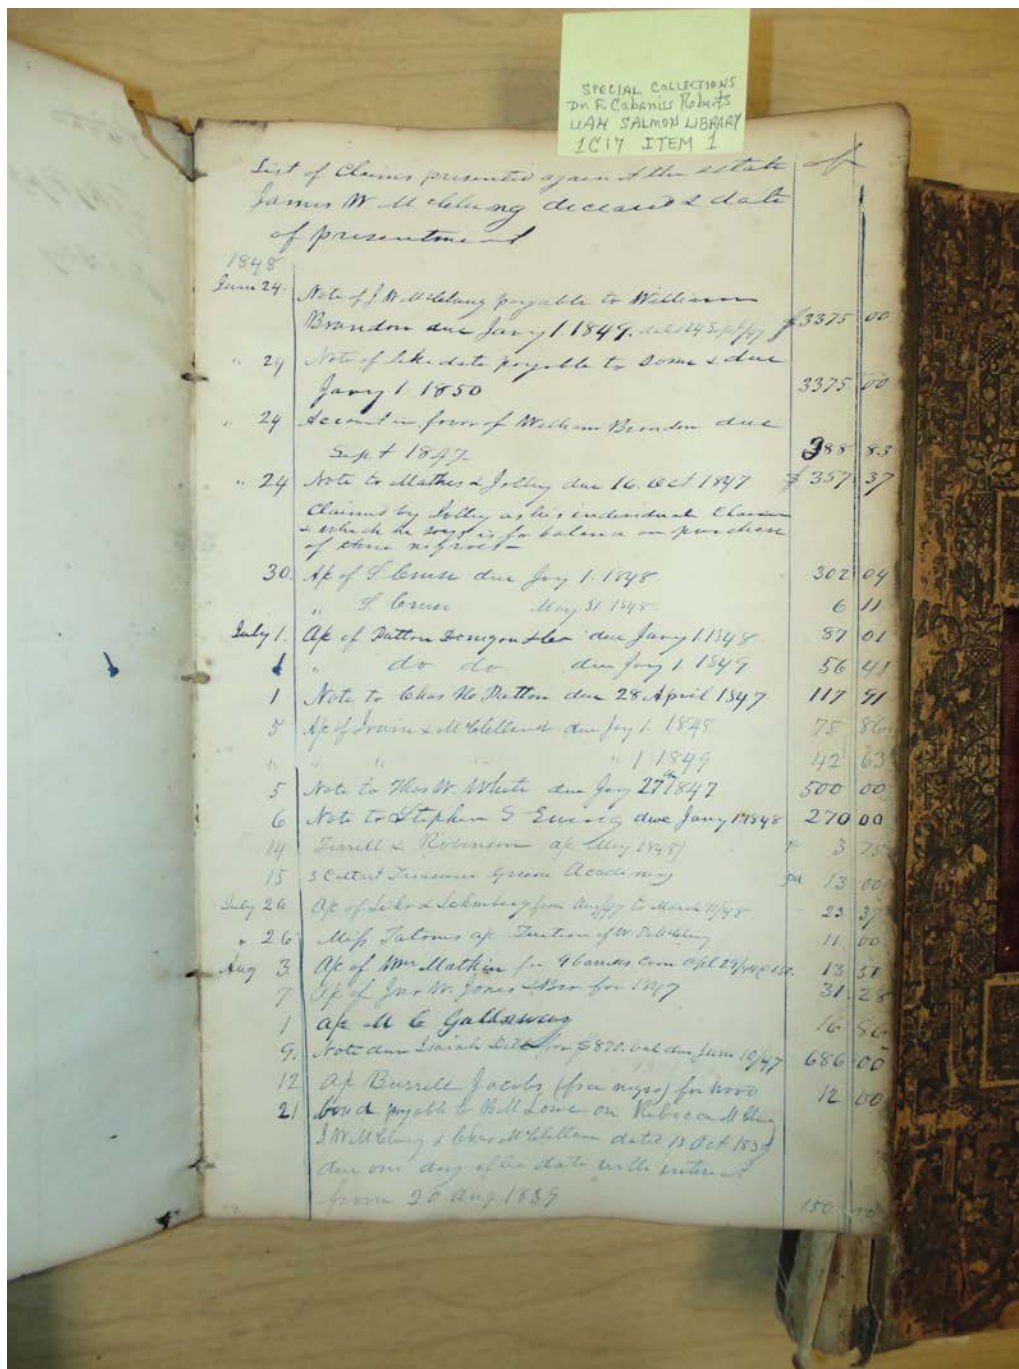 SPECIAL COLLECTIONS
Dr. F. Cabaniss Roberts
UAH SALMON LIBRARY
1C17 ITEM 1
List of Claims presented against the estate
James W McClung deceased & date
of presentment
1848
June 24. Note of J W McClung payable to William
Brandon due Jany 1. 1849. dated 24 Sept/47 $3375 00
" 29 Note of like date payable to Same & due
Jany 1 1850 3375 00
" 29 Account in favor of William Brandon due
Sept 1847. 388 83
" 24 Note to Mathis & Jolley due 16. Oct 1847 $357 37
Claimed by Jolley as his individual Claim
& which he says is for balance on purchase
of three negroes —
30. A/c of S Cruse due Jany 1. 1848 302 04
" S Cruse May 31 1848. 6 11
July 1. A/c of Patton Donegan & Co due Jany 1. 1848 87 01
1 " do do due Jany 1. 1849 56 41
1 Note to Chas H Patton due 28 April 1847 117 91
5 A/c of Irwin & McClelland due Jany 1. 1848 75 86
" " " " " 1 1849 42 63
5 Note to Thos W. White due Jany 27th 1847 500 00
6 Note to Stephen S Ewing due Jany 1st 1848 270 00
14 Terrell & Robinson a/c May 1848 3 75
15 S Coltart Treasurer Greene Academy 13 00
July 26 A/c of & from Aug/47 to March 11/48 23 37
" 26 Miss Tatoms a/c Tuition of W McClung 11 00
Aug 3 A/c of Wm Mathis for 9 barrels Corn Apl 29/48 @ 150. 13 51
7 A/c of Jno W. Jones & Bro for 1847 31.28
1 a/c M C Gallaway 16 86
9. Note due Isaiah Dill for $870. bal due June 10/47 686 00
12 A/c Burrell Jacobs (free negro) for wood 12 00
21 bond payable to B M Lowe on Rebecca McClung
J W McClung & Chas McClellan dated 18 Oct 1839
due one day after date with interest
from 20 Aug 1839 150